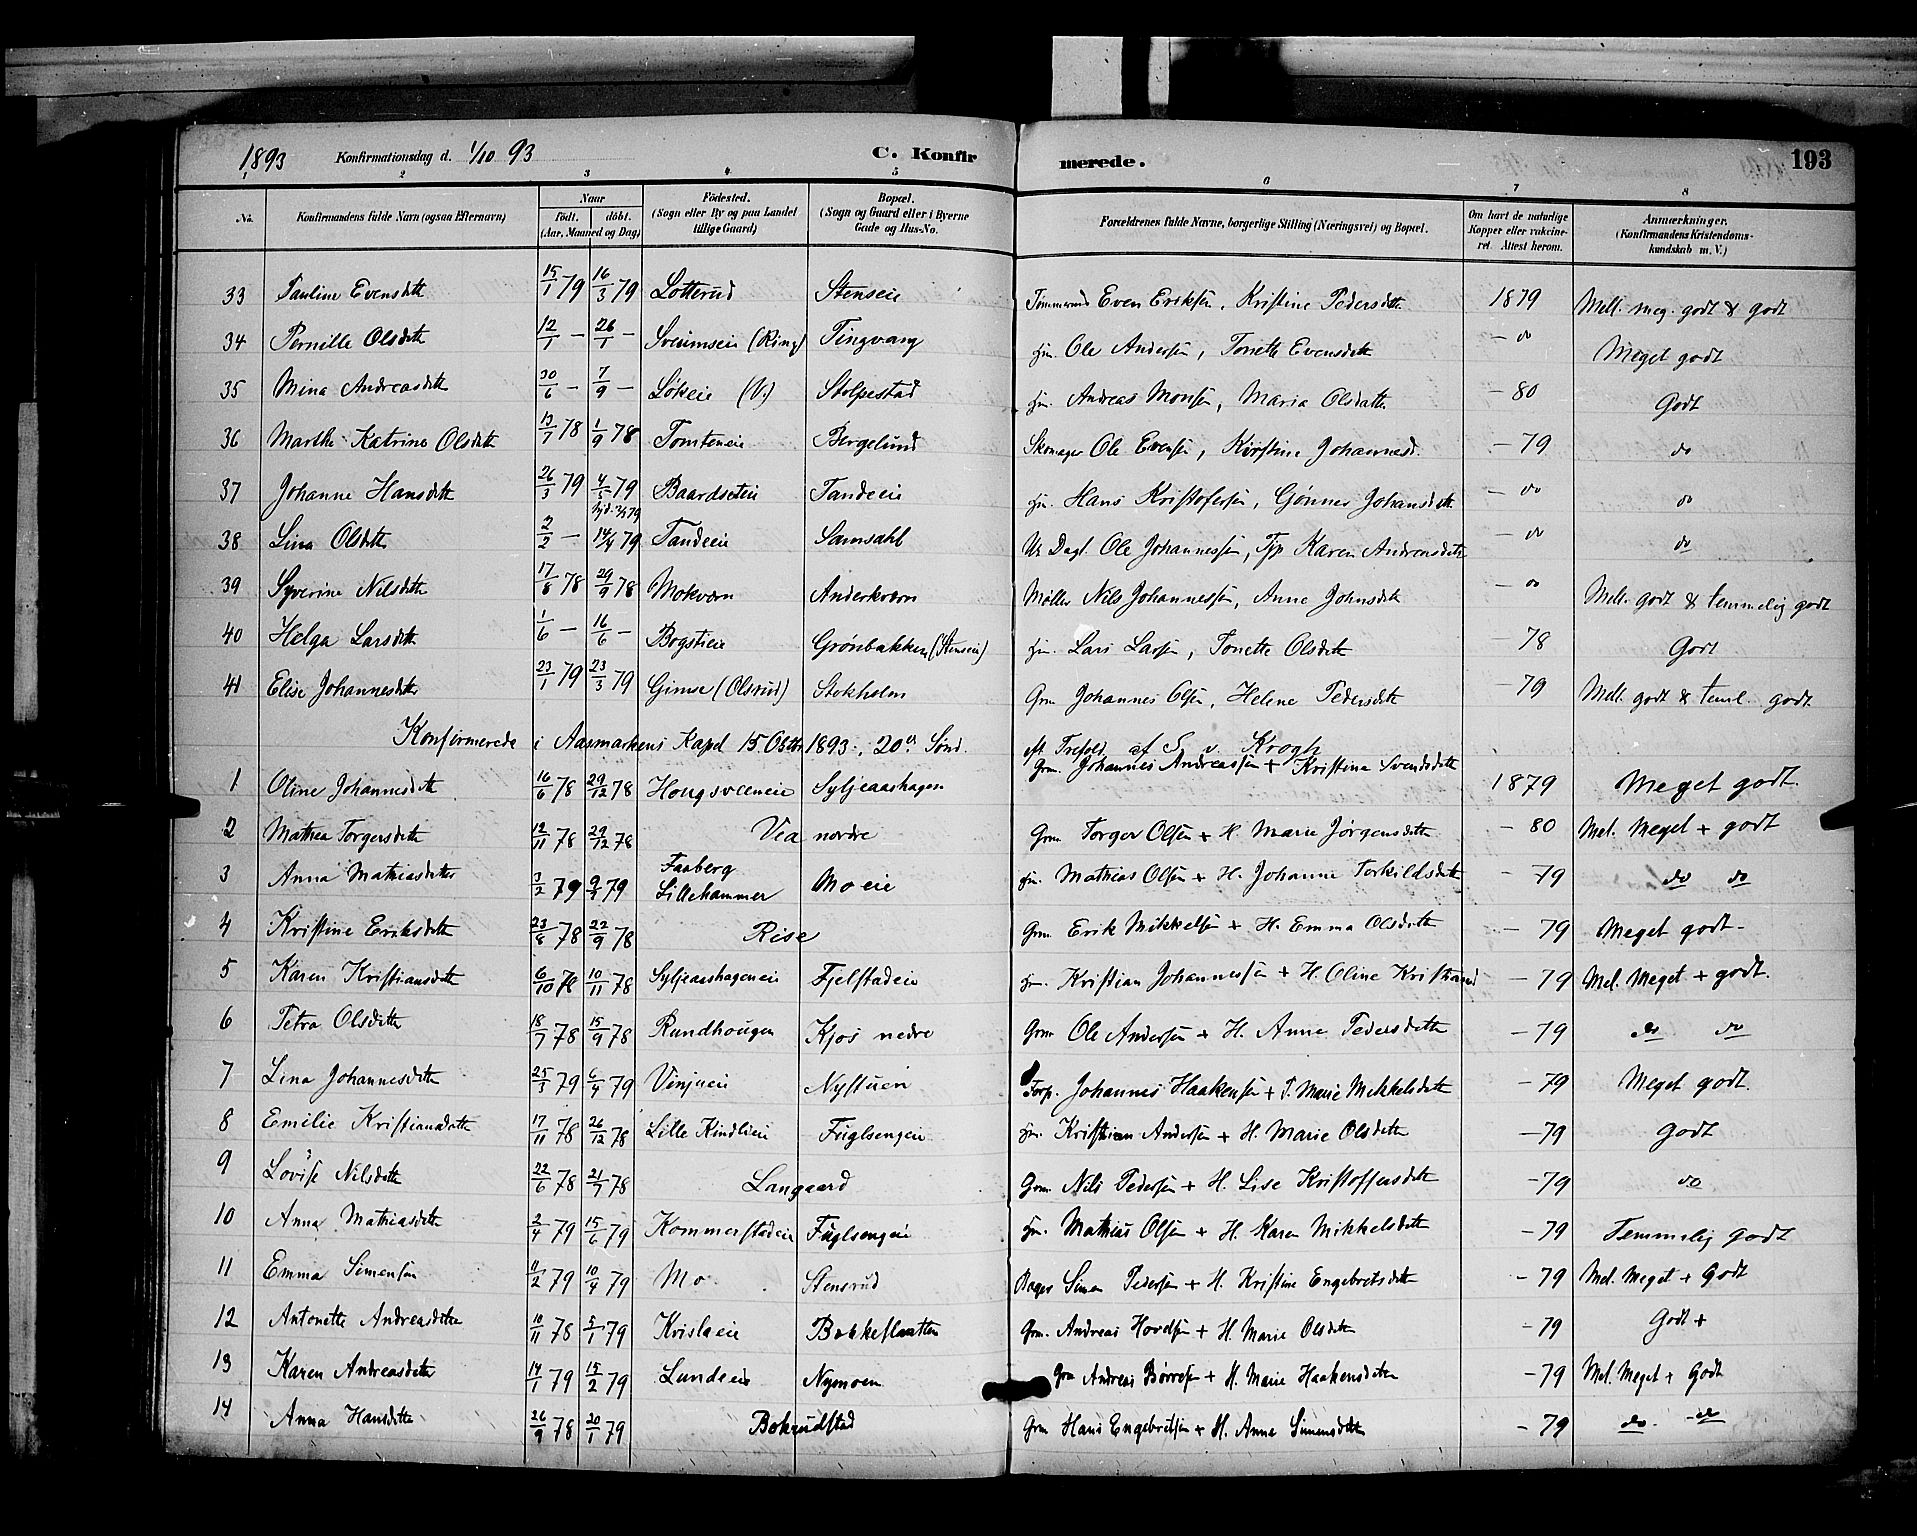 1893 Konfirmationsdag d. 1/10 93 C. Konfirmerede. 193
2 3 4 5 6 7 8
No. Konfirmandens fulde Navn (ogsaa Efternavn) Naar født. døbt. (Aar, Maaned og Dag) Fødested. (Sogn eller By og paa Landet tillige Gaard) Bopæl. (Sogn og Gaard eller i Byerne Gade og Hus-No. Forældrenes fulde Navne, borgerlige Stilling (Næringsvei) og Bopæl. Om havt de naturlige Kopper eller vakcineret. Attest herom. Anmærkninger. (Konfirmandens Kristendomskundskab m. V.)
33 Pauline Evensdtt 15/1 79 16/3 79 Lotterud Stenseie Tømmermd Even Eriksen, Kristine Pedersdtt 1879 Mell. meg. godt & godt
34 Pernille Olsdtt 12/1 — 26/1 — Sveumseie (Ring) Tingvang Hm. Ole Andersen, Tonette Evensdtt — do Meget godt
35 Mina Andreasdtt 30/6 — 7/9 — Løkeie (V.) Stolpestad Hm. Andreas Monsen, Maria Olsdatter — 80 Godt
36 Marthe Katrine Olsdtt 13/7 78 1/9 78 Tomteneie Bergelund Skomager Ole Evensen, Kirstine Johannesd. — 79 do
37 Johanne Hansdtt 26/3 79 4/5 79 Baardseteie Tandeeie Hm. Hans Kristofersen, Gønner Johansdtt — do do
38 Lina Olsdtt 2/2 — 14/4 79 Tandeeie Samsahl Uk Dagl. Ole Johannessen, Tjp Karen Andreasdtt — do do
39 Syverine Nilsdtt 17/8 78 29/9 78 Mokværn Anderkværn Møller Nils Johannessen, Anne Johnsdtt — do Mell. godt & temmelig godt
40 Helga Larsdtt 1/6 — 16/6 — Bogstieie Grønbakken (Stenseie) Hm. Lars Larsen, Tonette Olsdtt — 78 Godt
41 Elise Johannesdtt 23/1 79 23/3 79 Gimse (Olsrud) Stokholm Grm Johannes Olsen, Helene Pedersdtt — 79 Mell. godt & teml. godt
Konfirmerede i Aasmarkens Kapel 15. Oktbr 1893, 20de Sønd. eft. Trefold. af S. v. Krogh
1 Oline Johannesdtt 16/6 78 29/12 78 Hougsveeneie Syljeaashagen Grm. Johannes Andreassen + Kristina Svendsdtt 1879 Meget godt.
2 Mathea Torgersdtt 12/11 78 29/12 78 Vea nordre Grm Torger Olsen + H. Marie Jørgensdtt — 80 Mel. Meget + godt
3 Anna Mathiasdtt 3/2 79 79 Faaberg Lillehammer Moeie Hm. Mathias Olsen + H. Johanne Torkildsdtt — 79 do do
4 Kristine Eriksdtt 23/8 78 22/9 78 Rise Grm Erik Mikkelsen + H. Emma Olsdtt — 79 Meget godt -
5 Karen Kristiansdtt 6/10 78 10/11 78 Syljeaashageneie Fjelstadeie Hm. Kristian Johannessen + H. Oline Kristiansd — 79 Mel. Meget + godt.
6 Petra Olsdtt 18/7 78 15/9 78 Rundhougen Kjos nedre Grm Ole Andersen + H. Anne Pedersdtt — 79 do do
7 Lina Johannesdtt 25/3 79 6/4 79 Vinjueie Nystuen Forp. Johannes Haakensen + P. Marie Mikkelsdtt — 79 Meget godt.
8 Emilie Kristiansdtt 17/11 78 26/12 78 Lille Kindlieie Fuglsengen Hm. Kristian Andersen + H. Marie Olsdtt — 79 Godt
9 Lovise Nilsdtt 22/6 78 21/7 78 Langaard Grm Nils Pedersen + H. Lise Kristoffersdtt — 79 do
10 Anna Mathiasdtt 2/4 79 15/6 79 Kommerstadeie Fuglsengeie Hm. Mathias Olsen + H. Karen Mikkelsdtt — 79 Temmelig godt
11 Emma Simensen 11/2 79 10/4 79 Mo Stensrud Bager Simen Pedersen + H. Kristine Engebretsdtt — 79 Mel. Meget + Godt
12 Antonette Andreasdtt 10/11 78 5/1 79 Krislaeie Bakkeflaatten Grm. Andreas Hovdsen + H. Marie Olsdtt — 79 Godt +
13 Karen Andreasdtt 14/1 79 15/2 79 Lundeeie Nymoen Grm Andreas Børresen + H. Marie Haakensdtt — 79 Mel. Meget + Godt
14 Anna Hansdtt 26/9 78 20/1 79 Bokrudstad Grm Hans Engebretsen + H. Anna Simensdtt — 79 do do